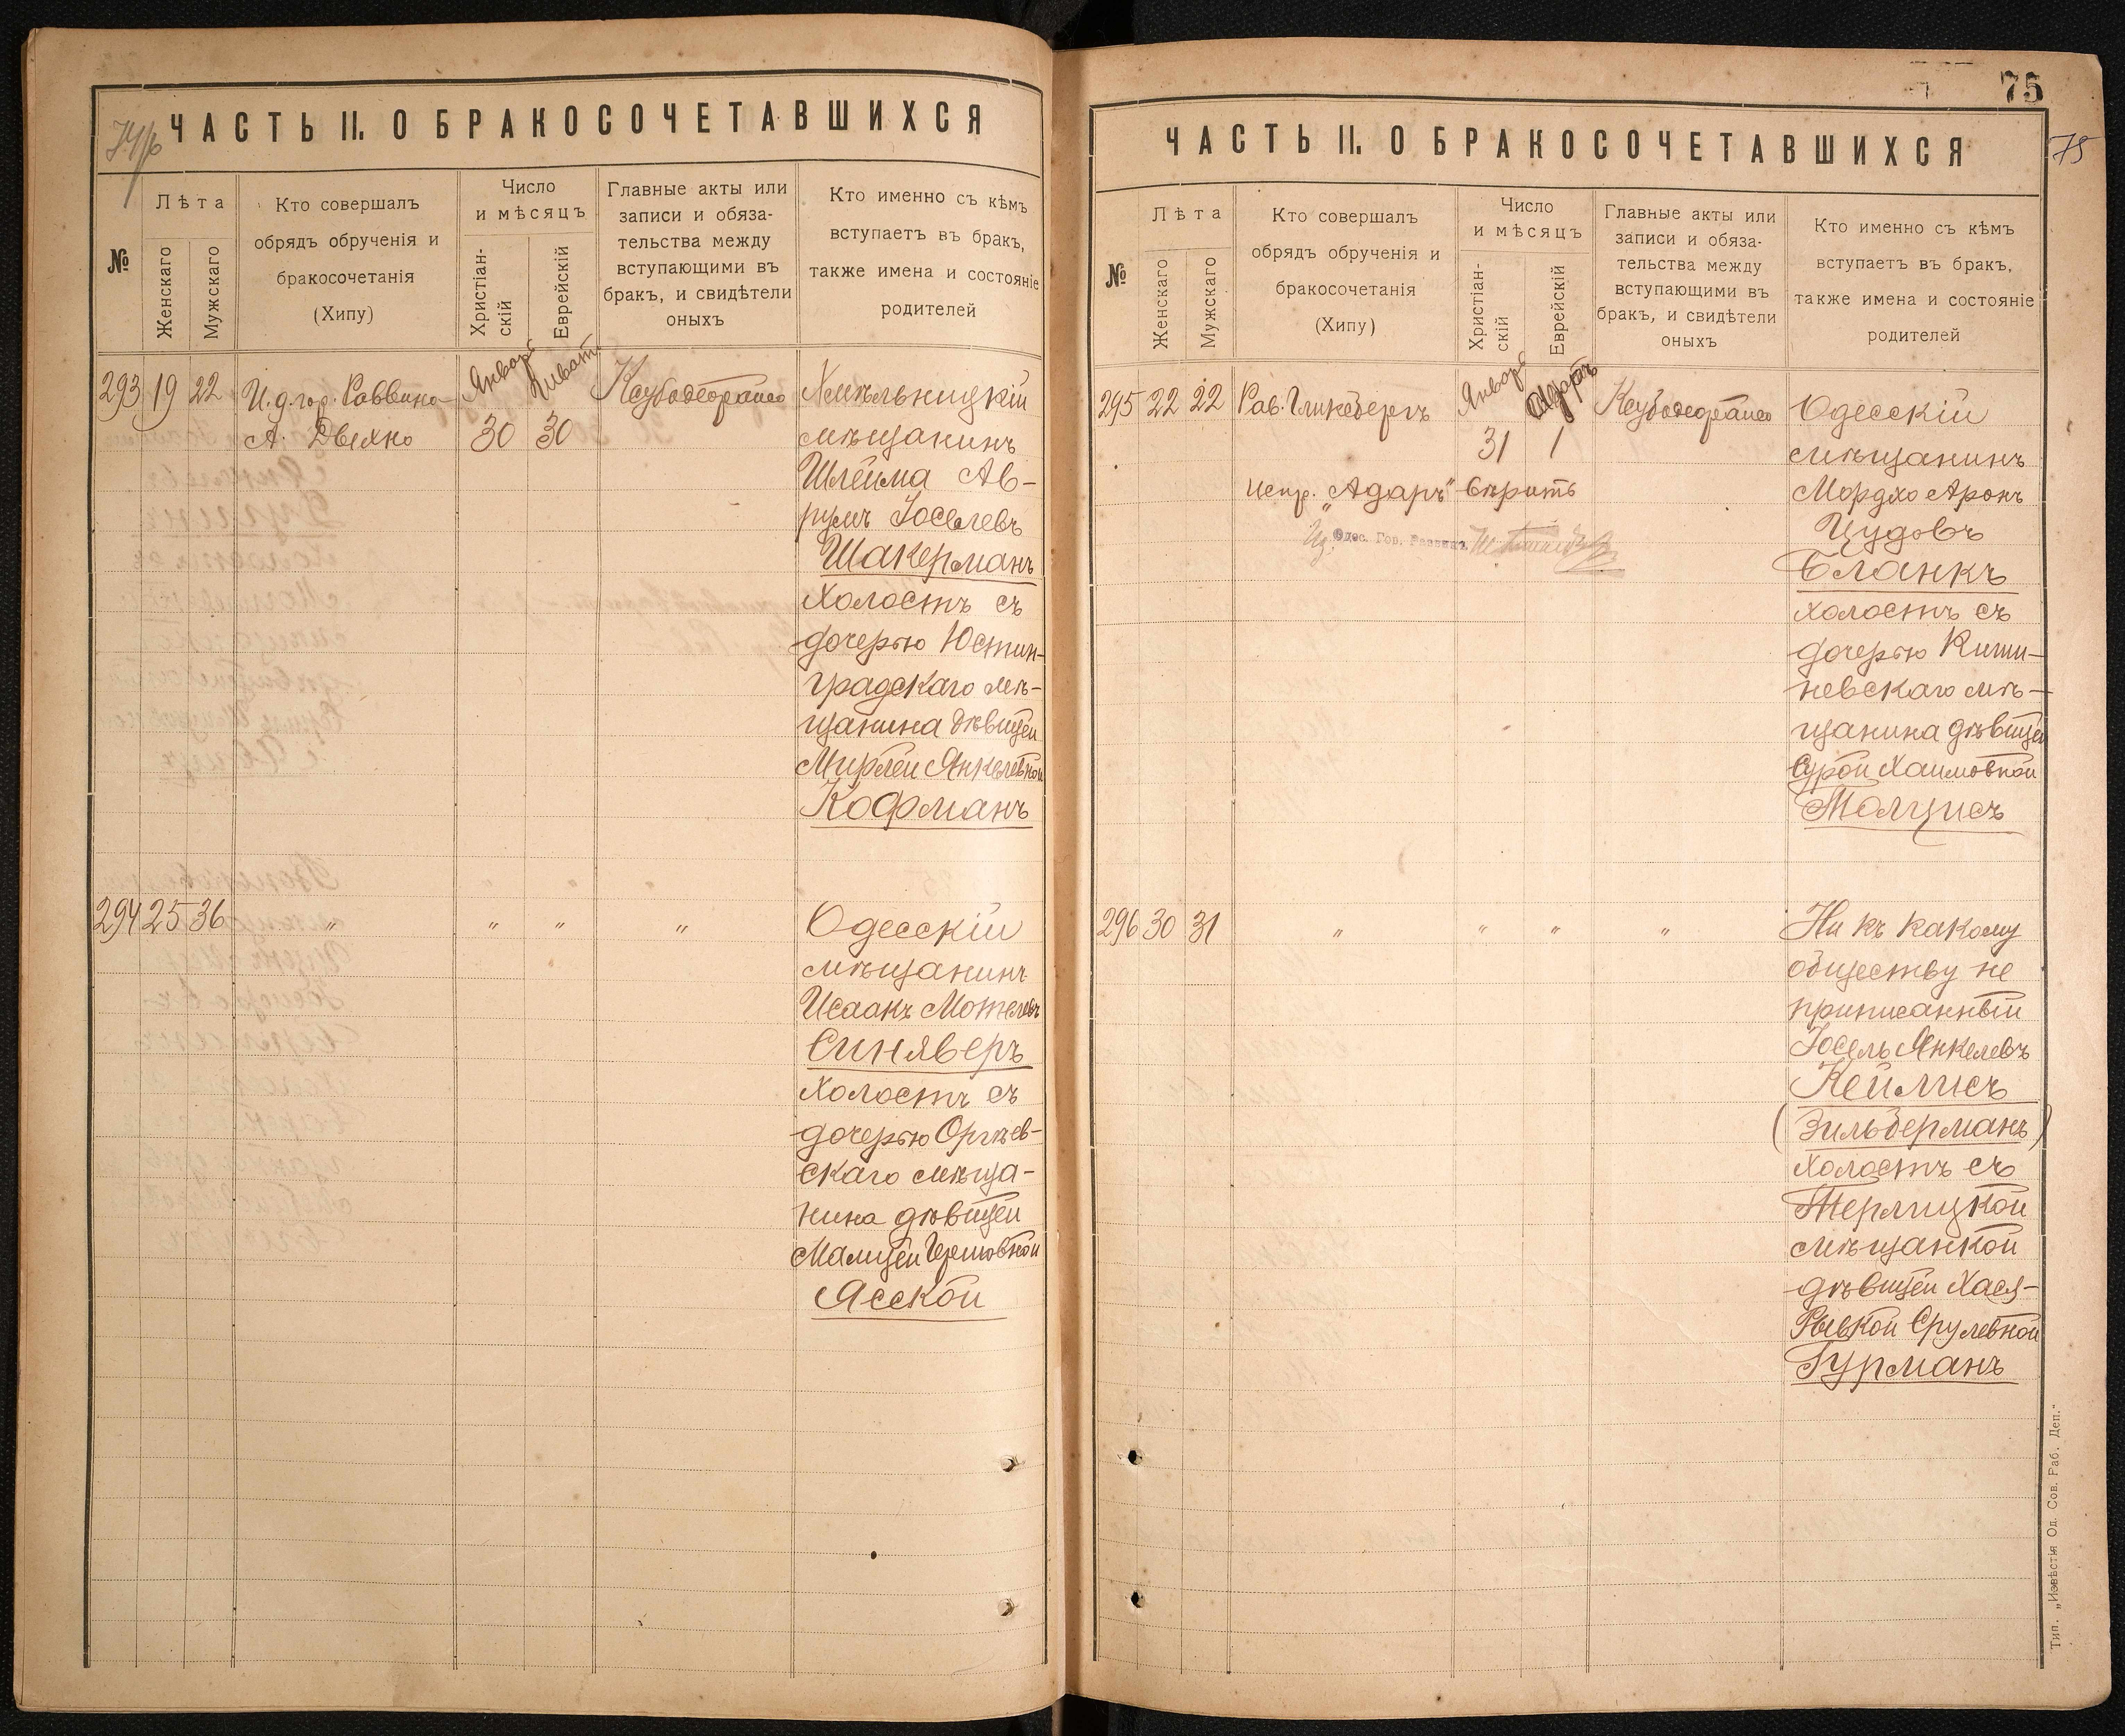 74/б
ЧАСТЬ II. О БРАКОСОЧЕТАВШИХСЯ
№
Лѣта
Женскаго
Мужскаго
Кто совершалъ
обрядъ обрученія и
бракосочетанія
(Хипу)
Число
и мѣсяцъ
Христіан-
скій
Еврейскій
Главные акты или
записи и обяза-
тельства между
вступающими въ
бракъ, и свидѣтели
оныхъ
Кто именно съ кѣмъ
вступаетъ въ бракъ,
также имена и состояніе
родителей
293 19 22 И. д. гор. Раввина
А. Двехно
Январь
Шиватъ
30 30
Кеубодеорайсо
Хмѣльницкій
мѣщанинъ
Шлейма Ав-
румъ Іоселевъ
Шакерманъ
холостъ съ
дочерью Юстин-
градскаго мѣ-
щанина дѣвицей
Мирлей Янкелевной
Кофманъ
294 25 36 " " " "
Одесскій
мѣщанинъ
Исаакъ Мотелевъ
Синяверъ
холостъ съ
дочерью Оргѣев-
скаго мѣща-
нина дѣвицей
Малцей Гершковной
Ясской
75
75
ЧАСТЬ II. О БРАКОСОЧЕТАВШИХСЯ
№
Лѣта
Женскаго
Мужскаго
Кто совершалъ
обрядъ обрученія и
бракосочетанія
(Хипу)
Число
и мѣсяцъ
Христіан-
скій
Еврейскій
Главные акты или
записи и обяза-
тельства между
вступающими въ
бракъ, и свидѣтели
оныхъ
Кто именно съ кѣмъ
вступаетъ въ бракъ,
также имена и состояніе
родителей
295 22 22 Рав. Гликсбергъ
Январь
Адаръ
31 1
Кеубодеорайсо
испр. „Адаръ" вѣрить
Одес. Гор. Раввинъ
Одесскій
мѣщанинъ
Мордхо Аронъ
Іудовъ
Бланкъ
холостъ съ
дочерью Киши-
невскаго мѣ-
щанина дѣвицей
Сурой Хаимовной
Толцисъ
296 30 31 " " " "
Ни къ какому
обществу не
приписанный
Іосель Янкелевъ
Кейлисъ
(Зильберманъ)
холостъ съ
Терлицкой
мѣщанкой
дѣвицей Хася-
Рывкой Срулевной
Гурманъ
Тип. „Извѣстія Од. Сов. Раб. Деп."